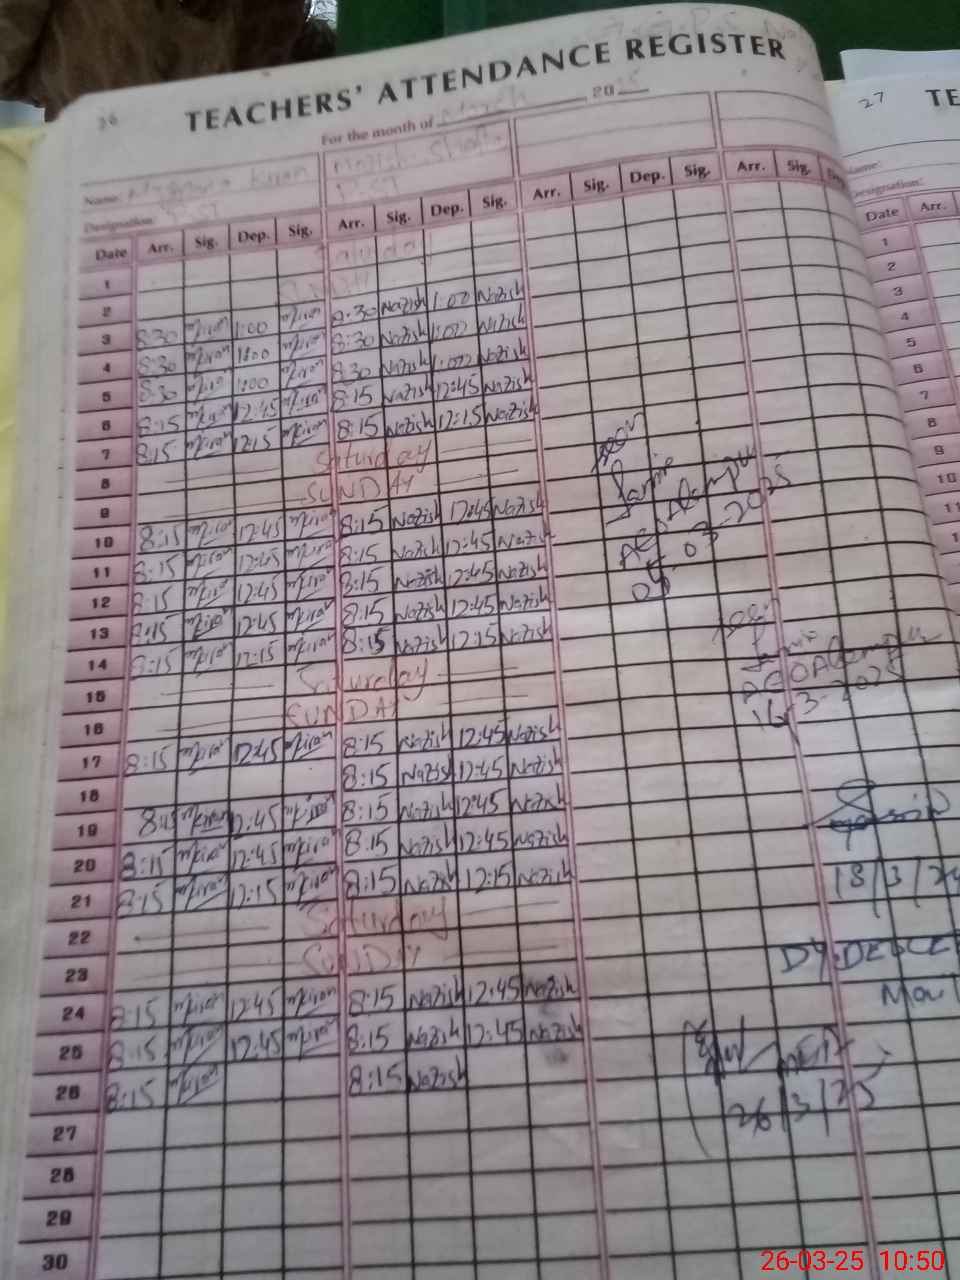 26
TEACHERS' ATTENDANCE REGISTER
For the month of March 2025
27 TE
Name: Kiran Nazish
Designation: PST PST
Date Arr. Sig. Dep. Sig. Arr. Sig. Dep. Sig. Arr. Sig. Dep. Sig. Arr. Sig.
Name:
Designation:
Date Arr.
1 Saturday
2
3 8:30 mkiran 1:00 mkiran 8:30 Nazish 1:00 Nazish
4 8:30 mkiran 1:00 mkiran 8:30 Nazish 1:00 Nazish
5 8:30 mkiran 1:00 mkiran 8:30 Nazish 1:00 Nazish
6 8:15 mkiran 12:45 mkiran 8:15 Nazish 12:45 Nazish
7 8:15 mkiran 12:15 mkiran 8:15 Nazish 12:15 Nazish
8 Saturday
9 SUNDAY
10 8:15 mkiran 12:45 mkiran 8:15 Nazish 12:45 Nazish
11 8:15 mkiran 12:45 mkiran 8:15 Nazish 12:45 Nazish
12 8:15 mkiran 12:45 mkiran 8:15 Nazish 12:45 Nazish
13 8:15 mkiran 12:45 mkiran 8:15 Nazish 12:45 Nazish
14 8:15 mkiran 12:15 mkiran 8:15 Nazish 12:15 Nazish
15 Saturday
16 SUNDAY
17 8:15 mkiran 12:45 mkiran 8:15 Nazish 12:45 Nazish
18 8:15 Nazish 12:45 Nazish
19 8:15 mkiran 12:45 mkiran 8:15 Nazish 12:45 Nazish
20 8:15 mkiran 12:45 mkiran 8:15 Nazish 12:45 Nazish
21 8:15 mkiran 12:15 mkiran 8:15 Nazish 12:15 Nazish
22 Saturday
23 SUNDAY
24 8:15 mkiran 12:45 mkiran 8:15 Nazish 12:45 Nazish
25 8:15 mkiran 12:45 mkiran 8:15 Nazish 12:45 Nazish
26 8:15 mkiran 8:15 Nazish
27
28
29
30
03-2025
3-2025
18/3/2
DY.DEO
26/3/25
1
2
3
4
5
6
7
8
9
10
26-03-25 10:50